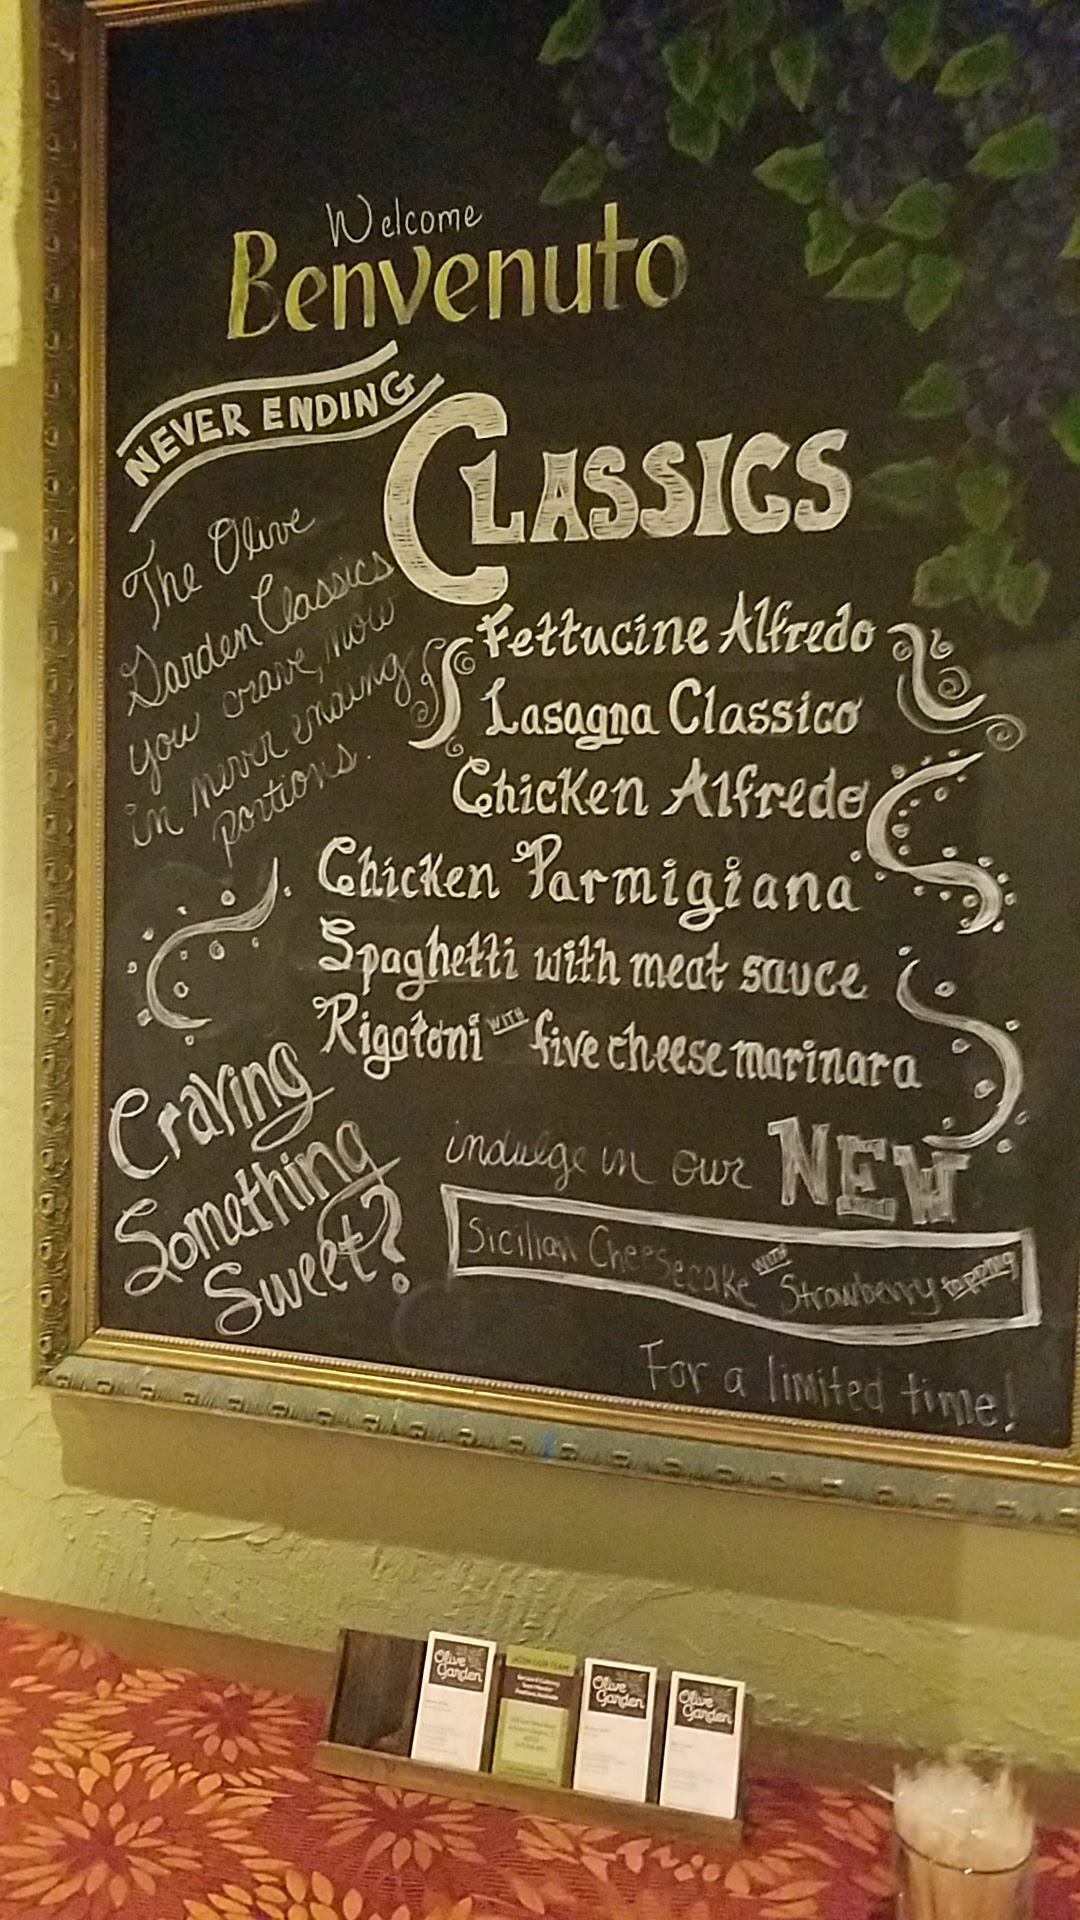 Welcome
Benvenuto
NEVER ENDING
CLASSICS
The Olive
Garden Classics
you crave, now
in never ending
portions.
Fettucine Alfredo
Lasagna Classico
Chicken Alfredo
Chicken Parmigiana
Spaghetti with meat sauce
Rigatoni WITH five cheese marinara
Craving
Something
Sweet?
indulge in our NEW
Sicilian Cheesecake WITH Strawberry topping
For a limited time!
Olive
Garden
JOIN OUR TEAM
Olive
Garden
Olive
Garden